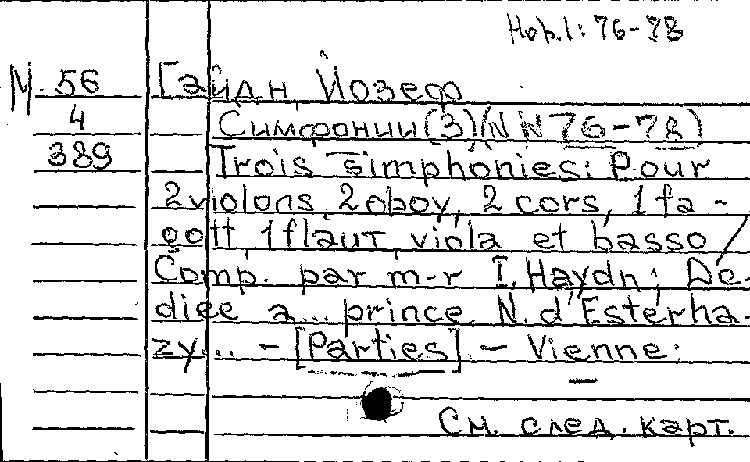 Hob.I: 76-78
М. 56 Гайдн, Йозеф
4 Симфонии (3) (NN 76-78)
389 Trois simphonies: Pour
2 violons, 2 oboy, 2 cors, 1 fa-
gott, 1 flaut, viola et basso /
Comp. par m-r I. Haydn; De-
diee a... prince N. d'Esterha-
zy... - [Parties] - Vienne:
См. след. карт.